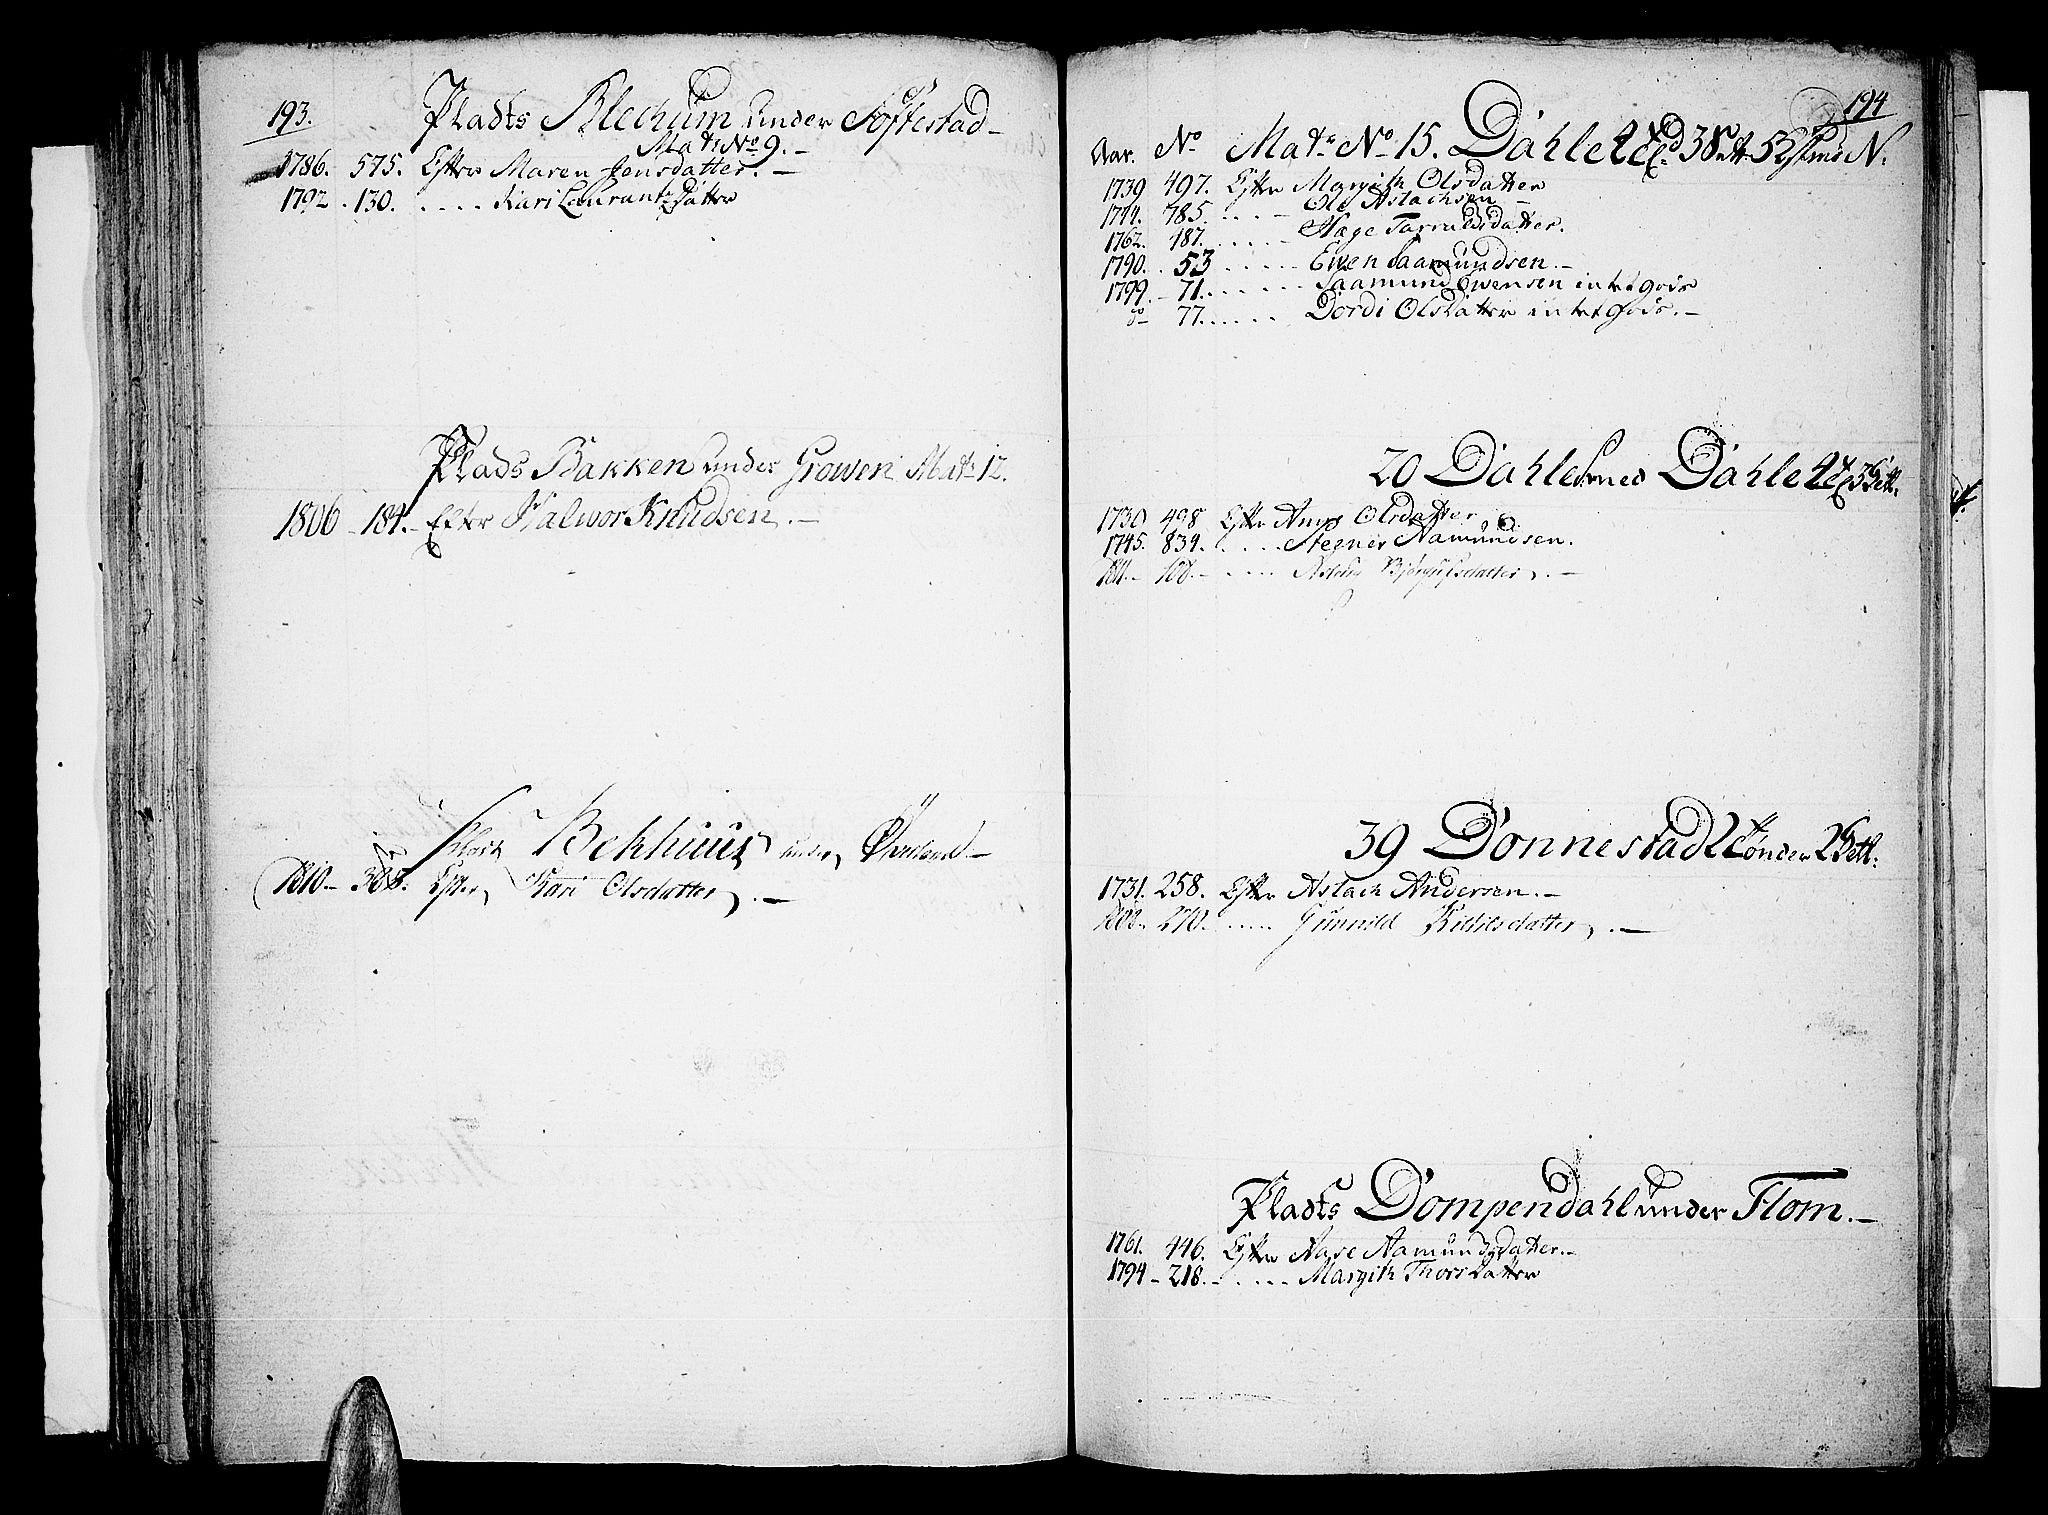 193.
Pladts Blechum under Softestad
Mat: No 9.
1786. 575. Efter Maren Jensdatter.
1792. 130. .... Kari Laurantzdatter
Plads Bakken under Growen Mat: 12.
1806 - 184. Efter Halvor Knudsen.
Bekhuus under
1810 - Efter Kari Olsdatter.
194
Aar. No Matr No 15. Dahle
1739 497. Efter Margith Olsdatter
1744. 785. .... Ole Aslachsen
1762. 487. ..... Hæge Tarruldsdatter.
1790. 53 ..... Ewen Saamundsen.
1799 - 71. ...... Saamund Ewensen intet gods
do 77. ..... Dordi Olsdatter intet gods.
20 Dahle Dahle
1730 498 Efter Olsdatter
1745. 834. .... Stegner Aamundsen.
1811 - 108. - .... Bjørgufsdatter.
39 Donnestad 2 Tønder
1731. 258. Efter Aslach Andersen.
270. ..... Gunnild Kittilsdatter.
Pladts Dompendahl under Flom.
1761. 446. Efter Aase Aamundsdatter.
1794 - 218. - .... Margith Thorsdatter